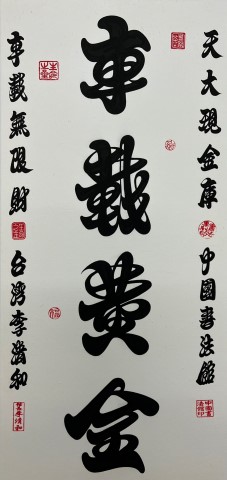 天大現金庫 中國書法館
車載黃金
車載氣限財 台灣李清和